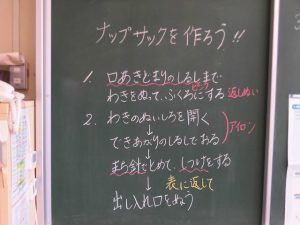 ナップサックを作ろう!!
1. 口あきどまりのしるしまで
わきをぬって、ふくろにする 返しぬい
2. わきのぬいしろを開く
↓
できあがりのしるしでおる アイロン
↓
まち針でとめて、しつけをする
↓ 表に返して
出し入れ口をぬう